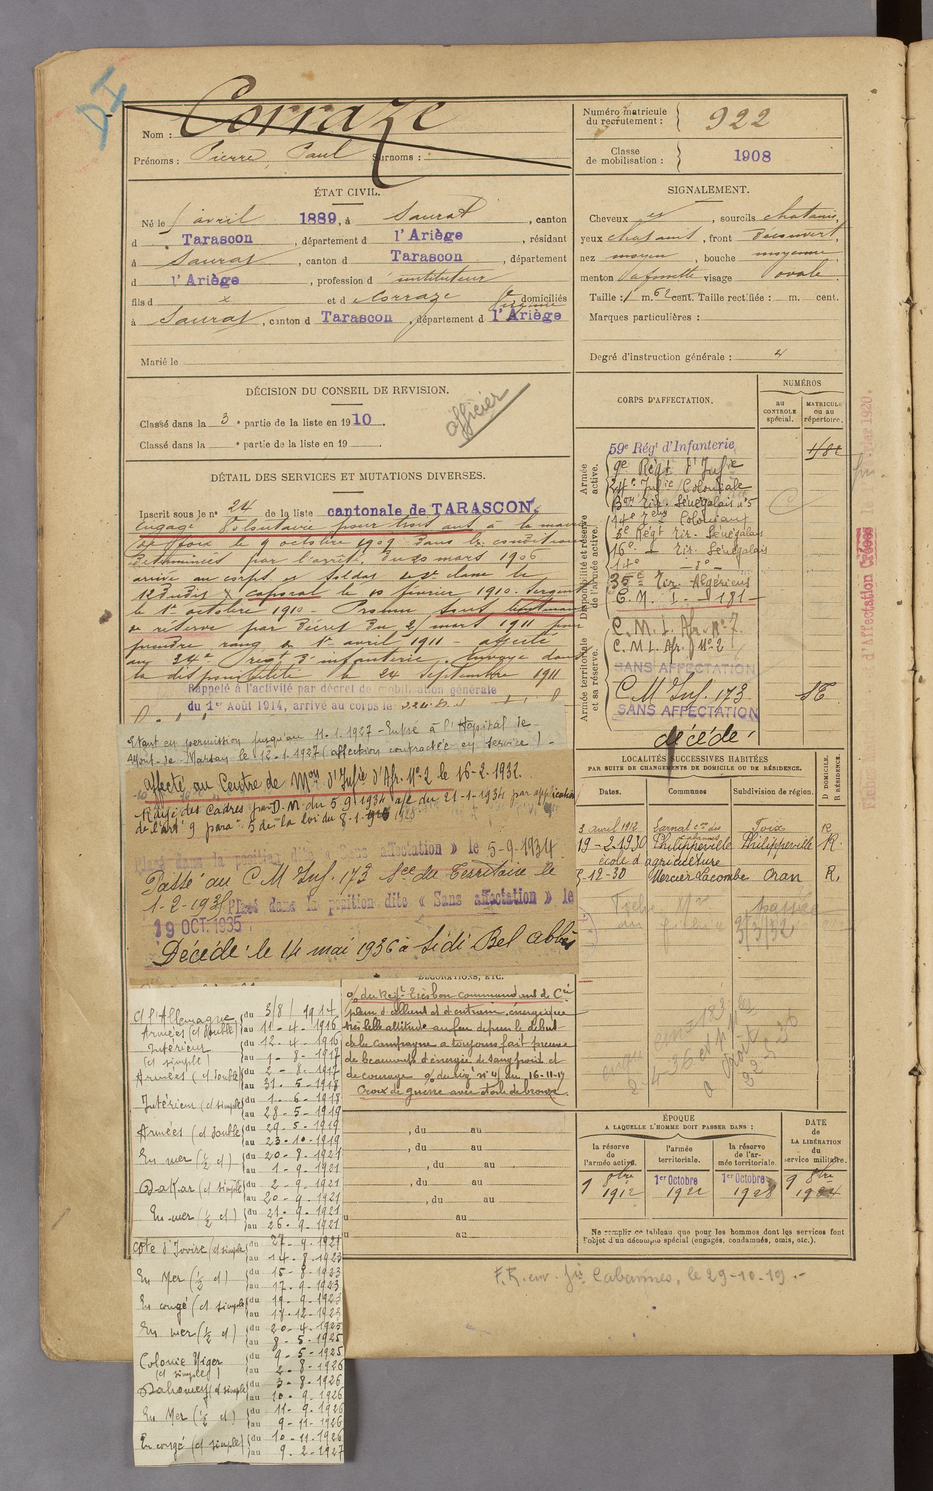 DI
Nom : Corraze
Prénoms : Pierre, Paul Surnoms :
Numéro matricule du recrutement : 922
Classe de mobilisation : 1908
ÉTAT CIVIL.
Né le 5 avril 1889, à Saurat, canton
d Tarascon, département d l'Ariège, résidant
à Saurat, canton d Tarascon, département
d l'Ariège, profession d instituteur
fils d x et d Corraze domiciliés
à Saurat, canton d Tarascon, département d l'Ariège
Marié le
SIGNALEMENT.
Cheveux et, sourcils chatains,
yeux chatains, front découvert,
nez moyen, bouche moyenne,
menton à fossette visage ovale
Taille : 1 m. 62 cent. Taille rectifiée : m. cent.
Marques particulières :
Degré d'instruction générale : 4
DÉCISION DU CONSEIL DE REVISION.
Classé dans la 3e partie de la liste en 1910.
Classé dans la e partie de la liste en 19
officier
DÉTAIL DES SERVICES ET MUTATIONS DIVERSES.
Inscrit sous le n° 24 de la liste cantonale de TARASCON.
Engagé Volontaire pour trois ans à la mairie
de Foix le 9 octobre 1909 dans les conditions
déterminées par l'arrêt. du 20 mars 1906
arrivé au corps et soldat de 2e classe le
12 dudit caporal le 10 février 1910. Sergent
le 1er octobre 1910 - Promu sous lieutenant
de réserve par décret du 2/ mars 1911 pour
prendre rang du 1er avril 1911 - affecté
au 24e régt d'infanterie. Envoyé dans
la disponibilité le 24 septembre 1911
Rappelé à l'activité par décret de mobilisation générale
du 1er Août 1914, arrivé au corps le
Etant en permission jusqu'au 11.1.1927 - Entré à l'Hôpital de
Mont-de-Marsan le 12.1.1927 (affection contractée en service) -
Affecté au Centre de Mon d'Infie d'Afr. N° 2 le 16-2-1932.
Rayé des Cadres par D.M du 5 9 1934 à/c du 21-1-1934 par application
de l'art 9 para. 5 de la loi du 8-1-1925
Placé dans la position dite « Sans affectation » le 5-9-1934
Passé au C M Inf. 173 Sce du Territoire le
1-2-193 Placé dans la position dite « Sans affectation » le
19 OCT. 1935
Décédé le 14 mai 1936 à Sidi Bel Abbès
CORPS D'AFFECTATION.
NUMÉROS
au CONTROLE spécial.
MATRICULE ou au répertoire.
Armée active.
Disponibilité et réserve de l'armée active.
Armée territoriale et sa réserve.
59e Rég d'Infanterie
9e Régt d'Infie
24e Infie Coloniale
Bon Tir. Sénégalais n° 5
5e Régt Tir. Sénégalais
16e - Tir. Sénégalais
14e - d° -
35e Tir. Algériens
C. M. I. - 181 -
C. M. I. Afr. N° 7.
C. M. I. Afr. N° 2
SANS AFFECTATION
C M Inf. 173
SANS AFFECTATION
décédé
LOCALITÉS SUCCESSIVES HABITÉES
PAR SUITE DE CHANGEMENTS DE DOMICILE OU DE RÉSIDENCE.
Dates. Communes Subdivision de région. D DOMICILE. R RÉSIDENCE.
3 avril 1912 Foix R
19-2-1930 Philippeville Philippeville R.
école d'agriculture
5-12-30 Mercier Lacombe Oran R,
3/3/32
C/ l'Allemagne du 3/8/1914
Armées (ct double) au 11-4-1916
Intérieur (ct simple) du 12-4-1916 au 1-8-1917
Armées (ct double) du 2-8-1917 au 31-5-1918
Intérieur (ct simple) du 1-6-1918 au 28-5-1919
Armées (ct double) du 29-5-1919 au 23-10-1919
En mer (½ ct) du 20-8-1921 au 1-9-1921
Dakar (ct simple) du 2-9-1921 au 20-9-1921
En mer (½ ct) du 21-9-1921 au 26-9-1921
Côte d'Ivoire (ct simple) du 27-9-1921 au 14-8-1923
En Mer (½ ct) du 15-8-1923 au 17-9-1923
En congé (ct simple) du 19-9-1923 au 17-12-1923
En mer (½ ct) du 20-4-1925 au 8-5-1925
Colonie Niger (ct simple) du 9-5-1925 au 2-8-1926
Dahomey (ct simple) du 3-8-1926 au 10-9-1926
En Mer (½ ct) du 11-9-1926 au 9-11-1926
En congé (ct simple) du 10-11-1926 au 9-2-1927
DÉCORATIONS, ETC.
O/ du Régt. Très bon commandant de Cie
plein d'allant et d'entrain, énergique
très belle attitude au feu depuis le début
de la campagne a toujours fait preuve
de beaucoup d'énergie de sang froid et
de courage. O/ du Rég. n° 41 du 16-11-17
Croix de guerre avec étoile de bronze.
, du au
, du au
, du au
, du au
au
au
ÉPOQUE
A LAQUELLE L'HOMME DOIT PASSER DANS :
la réserve de l'armée active.
l'armée territoriale.
la réserve de l'armée territoriale.
DATE de LA LIBÉRATION du service militaire.
9 8bre 1912
1er Octobre 1922
1er Octobre 1928
9 8bre
Ne remplir ce tableau que pour les hommes dont les services font
l'objet d'un décompte spécial (engagés, condamnés, omis, etc.).
F.R. env. Jie Cabannes, le 29-10-19.-